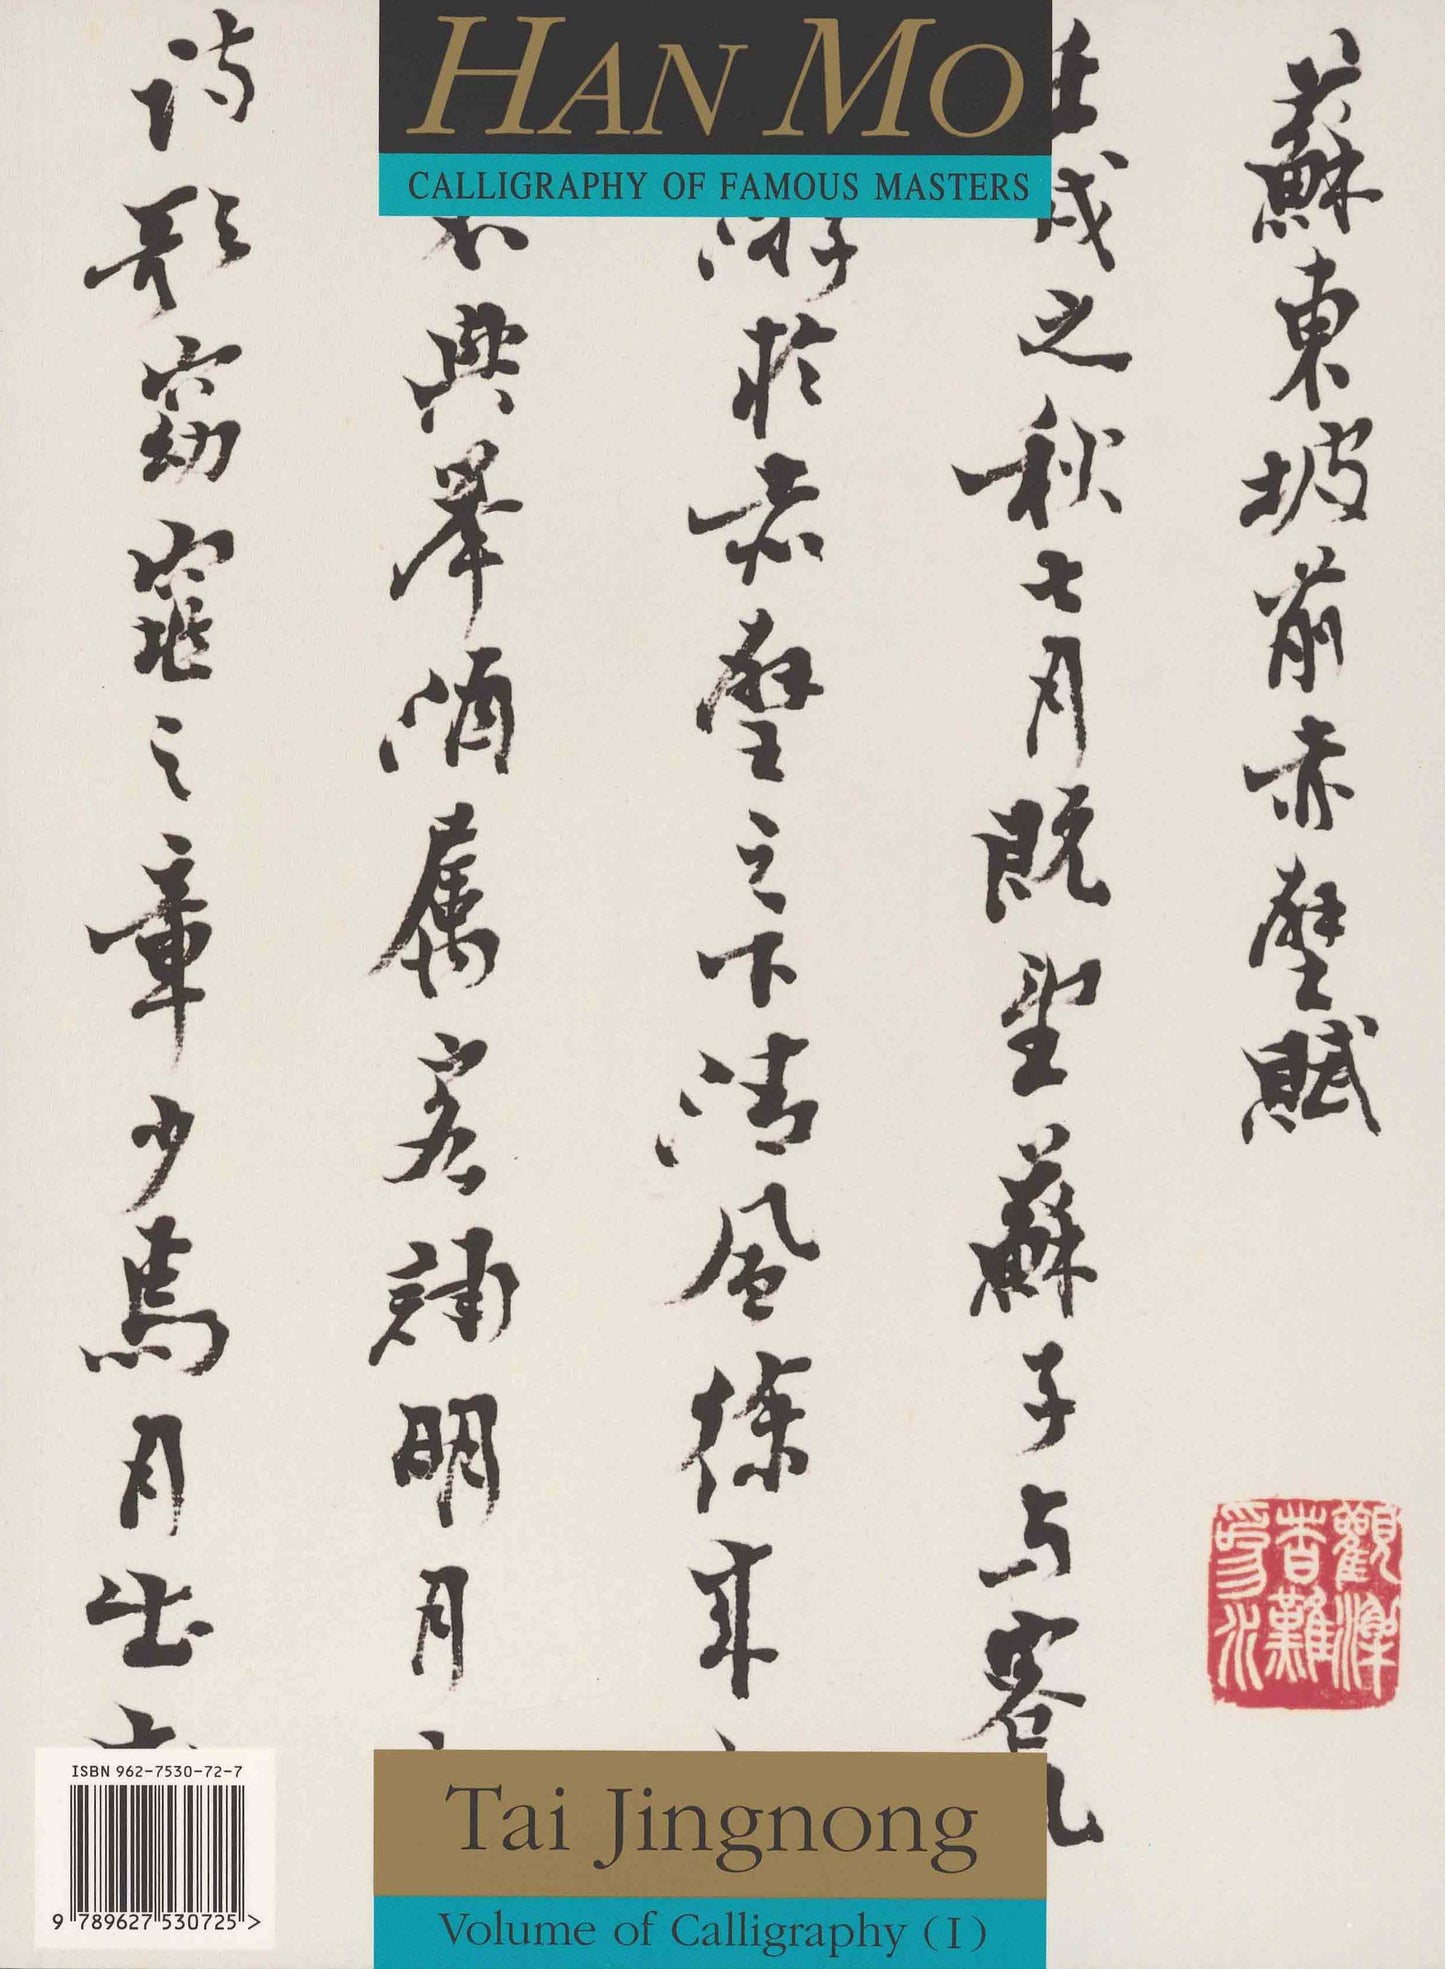 HAN MO
CALLIGRAPHY OF FAMOUS MASTERS
蘇東坡前赤壁賦
戌之秋七月既望蘇子与客
游於赤壁之下清風徐来
不興舉酒属客誦明月
詩歌窈窕之章少焉月出
觀海者難為水
ISBN 962-7530-72-7
9 789627 530725 >
Tai Jingnong
Volume of Calligraphy (I)